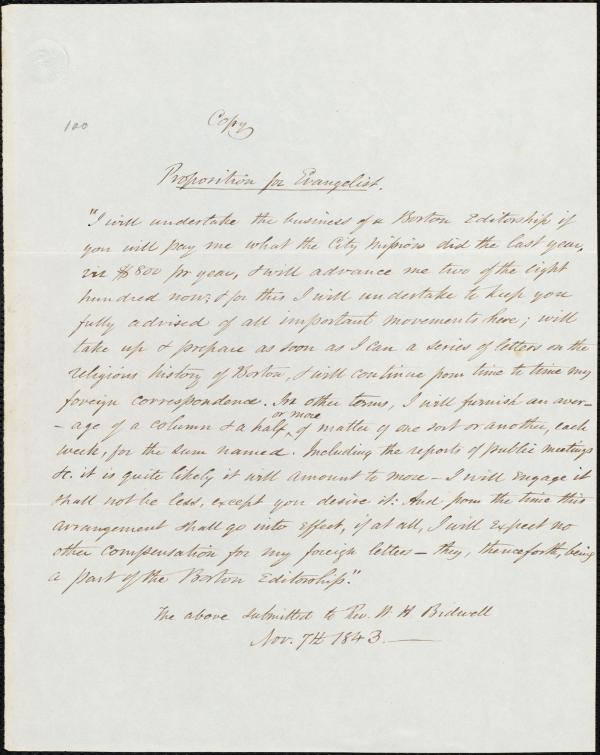 Copy
100
Proposition for Evangelist.
"I will undertake the business of a Boston Editorship if
you will pay me what the City Missions did the last year,
viz $800 pr year, & will advance me two of the eight
hundred now; & for this I will undertake to keep you
fully advised of all important movements here; will
take up & prepare as soon as I can a series of letters on the
religious history of Boston, & will continue from time to time my
foreign correspondence. In other terms, I will furnish an aver-
or more
-age of a column & a half, of matter of one sort or another, each
week, for the sum named. Including the reports of public meetings
&c. it is quite likely it will amount to more – I will engage it
shall not be less, except you desire it. And from the time this
arrangement shall go into effect, if at all, I will expect no
other compensation for my foreign letters – they, thenceforth, being
a part of the Boston Editorship."
The above submitted to Rev. W. H. Bidwell
Nov. 7th 1843. —